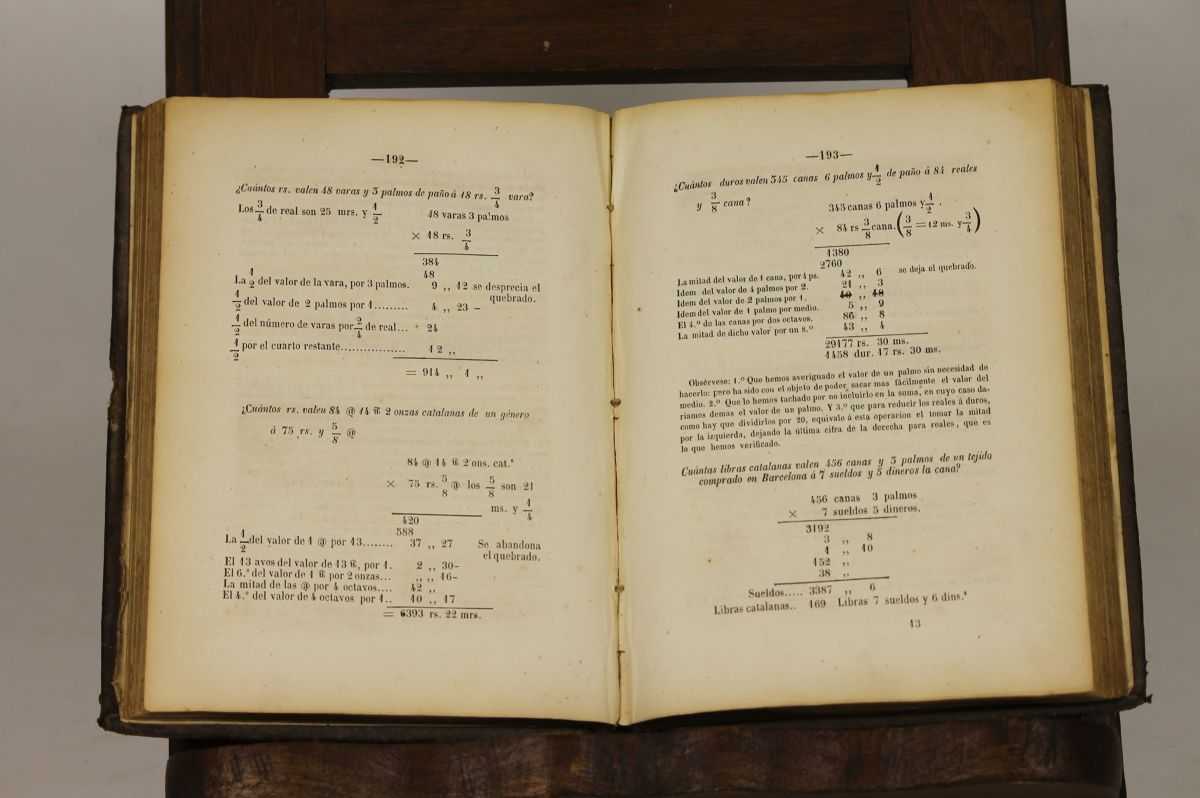 —192—
¿Cuántos rs. valen 48 varas y 3 palmos de paño á 18 rs. 3/4 vara?
Los 3/4 de real son 25 mrs. y 1/2
48 varas 3 palmos
× 18 rs. 3/4
384
48
La 1/2 del valor de la vara, por 3 palmos. 9 ,, 12 se desprecia el
quebrado.
1/2 del valor de 2 palmos por 1......... 4 ,, 23 –
1/2 del número de varas por 2/4 de real... 24
1/2 por el cuarto restante................ 12 ,,
= 914 ,, 1 ,,
¿Cuántos rs. valen 84 @ 14 ℔ 2 onzas catalanas de un género
á 75 rs. y 5/8 @
84 @ 14 ℔ 2 ons. cat.ˢ
× 75 rs. 5/8 @ los 5/8 son 21
ms. y 1/4
420
588
La 1/2 del valor de 1 @ por 13........ 37 ,, 27 Se abandona
el quebrado.
El 13 avos del valor de 13 ℔, por 1. 2 ,, 30–
El 6.º del valor de 1 ℔ por 2 onzas... ,, ,, 16–
La mitad de las @ por 4 octavos.... 42 ,,
El 4.º del valor de 4 octavos por 1.. 10 ,, 17
= 6393 rs. 22 mrs.
—193—
¿Cuántos duros valen 345 canas 6 palmos y 1/2 de paño á 84 reales
y 3/8 cana?
345 canas 6 palmos y 1/2 .
× 84 rs 3/8 cana. (3/8 = 12 ms. y 3/4)
1380
2760
La mitad del valor de 1 cana, por 4 ps. 42 ,, 6 se deja el quebrado.
Idem del valor de 4 palmos por 2. 21 ,, 3
Idem del valor de 2 palmos por 1. 10 ,, 18
Idem del valor de 1 palmo por medio. 5 ,, 9
El 4.º de las canas por dos octavos. 86 ,, 8
La mitad de dicho valor por un 8.º 43 ,, 4
29177 rs. 30 ms.
1458 dur. 17 rs. 30 ms.
Obsérvese: 1.º Que hemos averiguado el valor de un palmo sin necesidad de
hacerlo: pero ha sido con el objeto de poder sacar mas fácilmente el valor del
medio. 2.º Que lo hemos tachado por no incluirlo en la suma, en cuyo caso da-
riamos demas el valor de un palmo. Y 3.º que para reducir los reales á duros,
como hay que dividirlos por 20, equivale á esta operacion el tomar la mitad
por la izquierda, dejando la última cifra de la derecha para reales, que es
la que hemos verificado.
Cuántas libras catalanas valen 456 canas y 3 palmos de un tejido
comprado en Barcelona á 7 sueldos y 5 dineros la cana?
456 canas 3 palmos
× 7 sueldos 5 dineros.
3192
3 ,, 8
1 ,, 10
152 ,,
38 ,,
Sueldos..... 3387 ,, 6
Libras catalanas.. 169 Libras 7 sueldos y 6 dins.ˢ
13